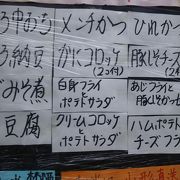 ろ中おち
ろ納豆
みそ煮
豆腐
メンチかつ
かにコロッケ
(2コ付)
白身フライ
と
ポテトサラダ
クリームコロッケ
と
ポテトサラダ
ひれかつ
豚しそチーズ
あじフライと
ハムポテト
チーズフラ